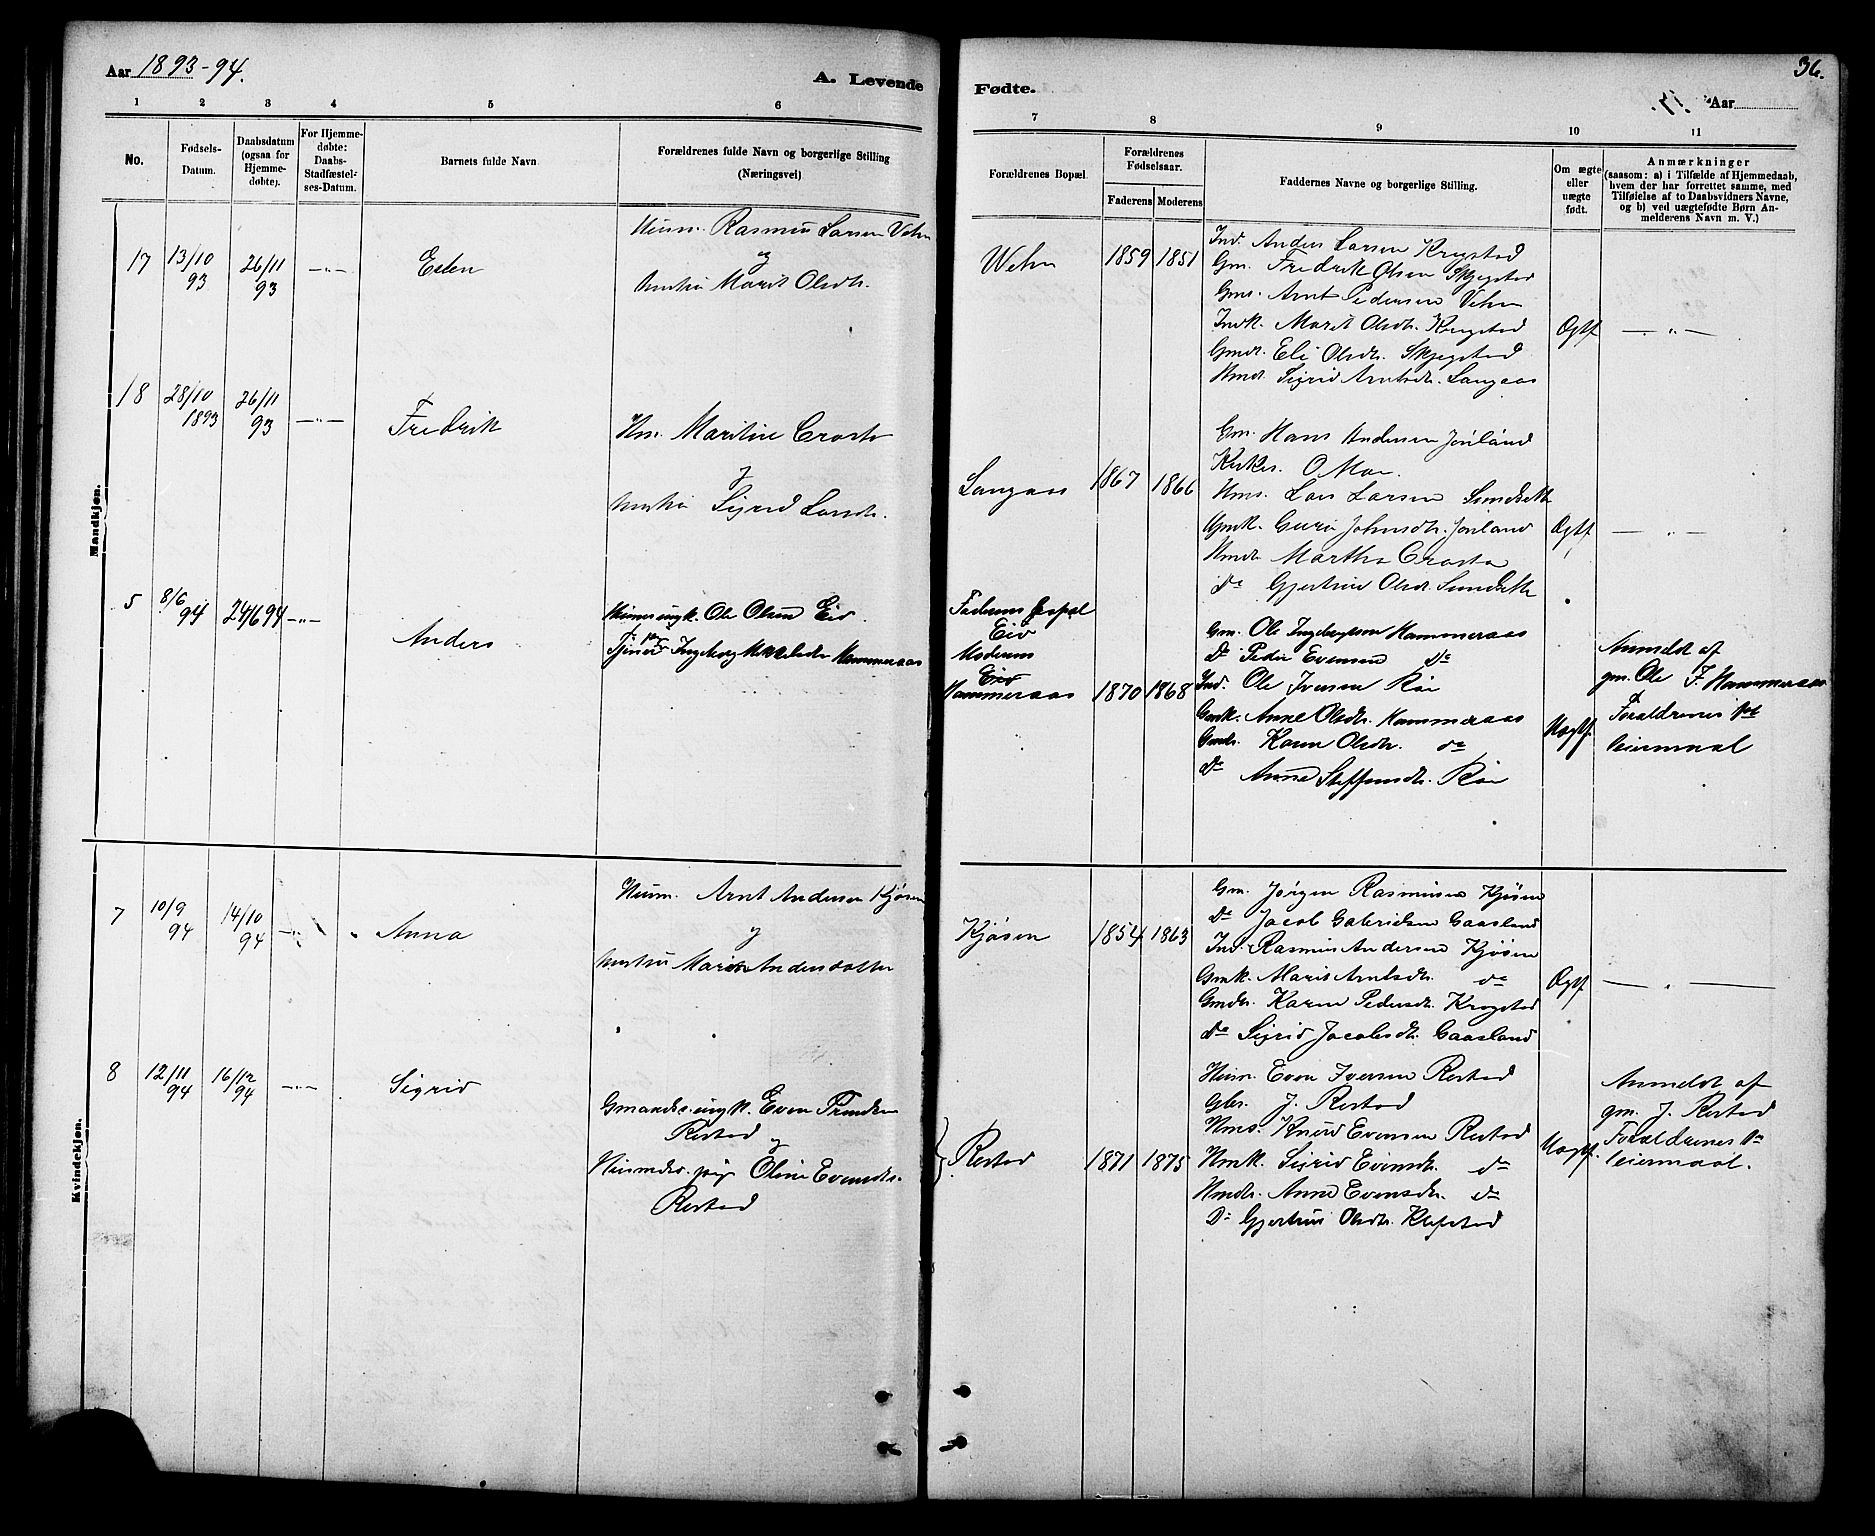 Aar 1893-94.
A. Levende
Fødte.
Aar
36.
1
2
3
4
5
6
7
8
9
10
11
No.
Fødsels-
Datum.
Daabsdatum
(ogsaa for
Hjemme-
døbte).
For Hjemme-
døbte:
Daabs-
Stadfæstel-
ses-Datum.
Barnets fulde Navn
Forældrenes fulde Navn og borgerlige Stilling
(Næringsvei)
Forældrenes Bopæl.
Forældrenes
Fødselsaar.
Faderens
Moderens
Faddernes Navne og borgerlige Stilling.
Om ægte
eller
uægte
født.
Anmærkninger
(saasom: a) i Tilfælde af Hjemmedaab,
hvem der har forrettet samme, med
Tilføielse af to Daabsvidners Navne,
og b) ved uægtefødte Børn An-
melderens Navn m. V.)
Mandkjøn.
17
13/10
93
26/11
93
— „ —
Esten
Rasmus Larsen Vehn
og
Hustru Marit Olsdtr.
Wehn
1859
1851
Ind. Anders Larsen Krogstad
Gm. Fredrik Olsen Skjegstad
Gms. Arnt Pedersen Vehn
Indk. Marit Olsdtr. Krogstad
Gmdr. Eli Olsdtr. Skjegstad
Hmdr. Sigrid Arntsdtr. Langaas
Ægtf
— „ —
18
28/10
1893
26/11
93
— „ —
Fredrik
Hm. Martin Crosta
og
Hustru Sigrid Larsdtr.
Langaas
1867
1866
Gm. Hans Andersen Jonland
Kirkes. O Moe.
Hms. Lars Larsen Sundseth
Gmk. Guru Johnsdtr. Jonland
Hmdr. Martha Crosta
do Gjertrud Olsdtr. Sundseth
Ægtf
— „ —
5
8/6
94
24/6 94
— „ —
Anders
Husmands ungk. Ole Olsen Eid.
Ingeborg Mikkelsdtr Hammeraas
Faderens Bopæl
Eid
Moderens
Hammeraas
1870
1868
Gm. Ole Ingebrigtsen Hammeraas
Do Peder Evensen do
Ind. Ole Iversen Röe
Gmk. Anne Olsdtr. Hammeraas
Gmdr. Karen Olsdtr. do
do Anne Steffensdtr. Röe
Uægtf.
Anmeldt af
gm. Ole I. Hammeraas
Forældrenes 1ste
leiermaal
Kvindekjøn.
7
10/9
94
14/10
94
— „ —
Anna
Husm. Arnt Andersen Kjösen
og
Hustru Marit Andersdatter
Kjösen
1854
1863
Gm. Jörgen Rasmusen Kjösen
Do Jacob Gabrielsen Gaasland
Ind. Rasmus Andersen Kjösen
Gmk. Marit Arntsdtr. do
Gmdr. Karen Pedersdtr. Krogstad
do Sigrid Jacobsdtr. Gaasland
Ægtf
— „ —
8
12/11
94
16/12
94
— „ —
Sigrid
Gmands. ungk. Even Trondsen
Restad
og
Husmds. pige Oline Evensdtr.
Restad
Restad
1871
1875
Husm. Even Iversen Restad
Gbr. J. Restad
Hms. Knud Evensen Restad
Hmk. Sigrid Evensdtr. do
Hmdr. Anne Evensdtr. do
Do Gjertrud Olsdtr. Klefstad
Uægtf.
Anmeldt af
gm. J. Restad
Forældrenes 1ste
leiermaal.